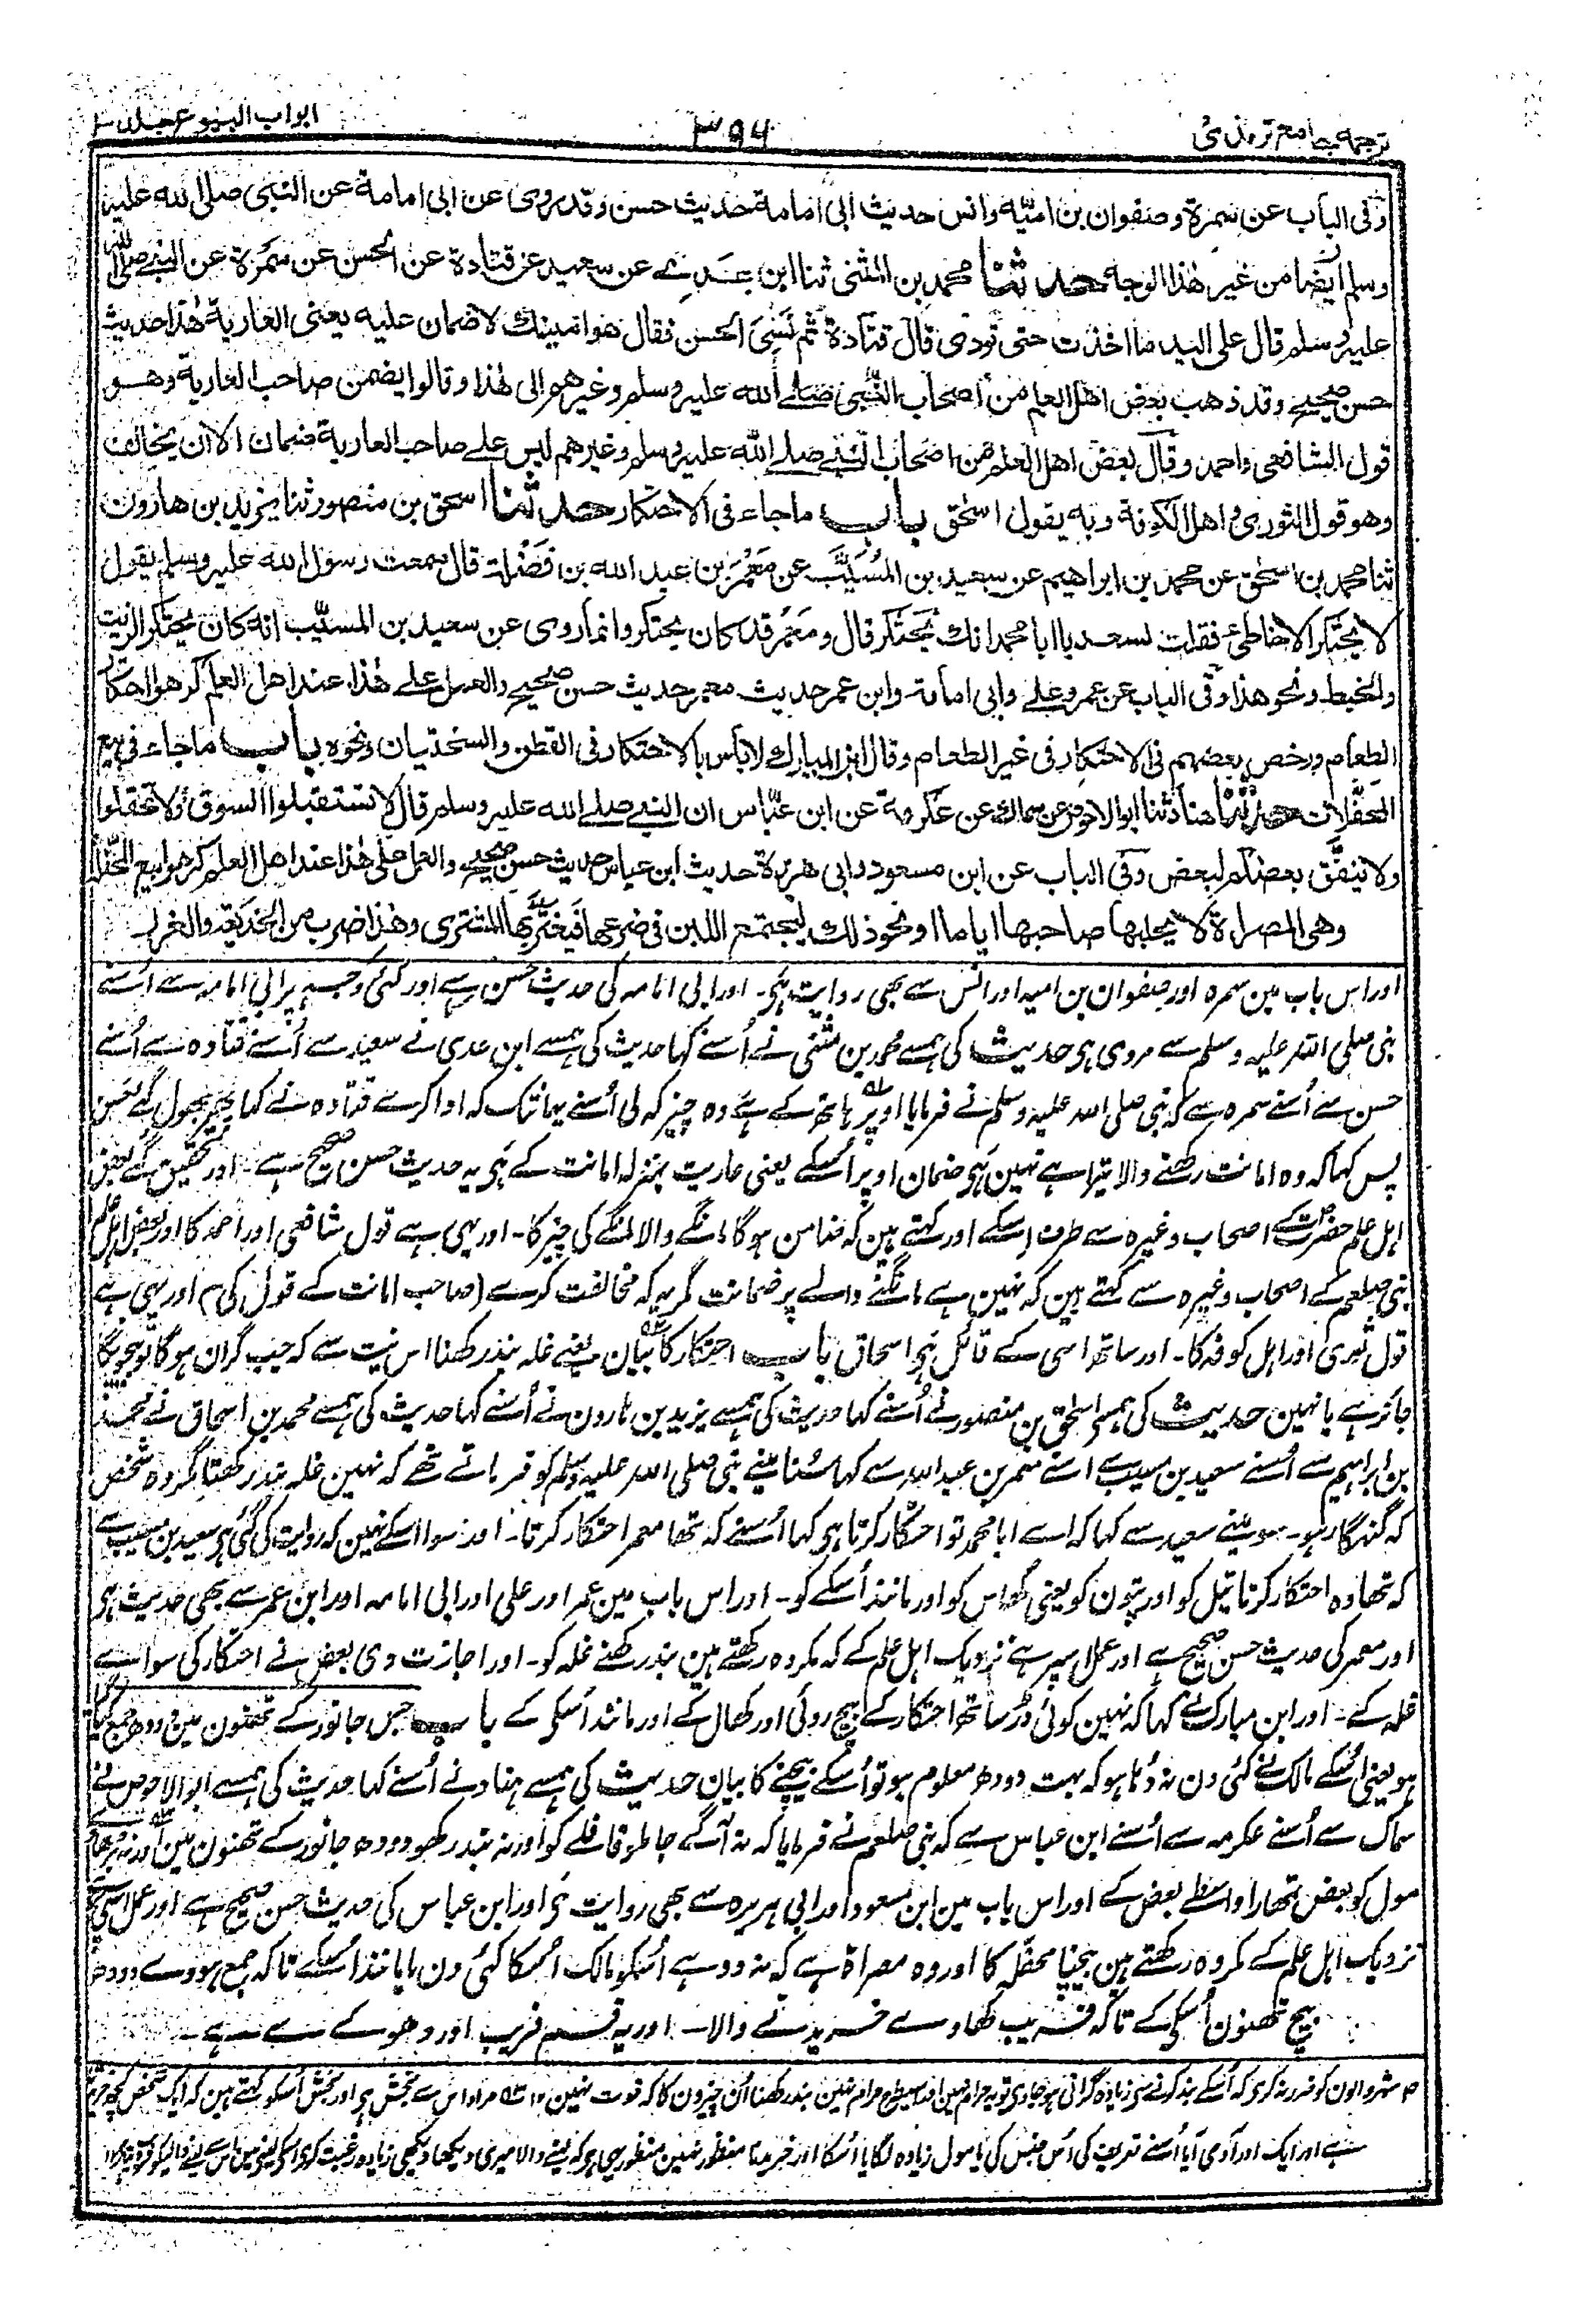 ترجمہ جامع ترمذی
۳۹۴
ابواب البیوع جلد ۱
وفی الباب عن سمرة وصفوان بن امیّه وانس حدیث ابی امامة حدیث حسن وقد روی عن ابی امامة عن النبی صلی الله علیه
وسلم ایضا من غیر هذا الوجه حدثنا محمد بن المثنی ثنا ابن عدی عن سعید عن قتادة عن الحسن عن سمرة عن النبی صلی الله
علیه وسلم قال علی الید ما اخذت حتی تودی قال قتادة ثم نسی الحسن فقال هو امینك لا ضمان علیه یعنی العاریة هذا حدیث
حسن صحیح وقد ذهب بعض اهل العلم من اصحاب النبی صلی الله علیه وسلم وغیرهم الی هذا وقالوا یضمن صاحب العاریة وهو
قول الشافعی واحمد وقال بعض اهل العلم من اصحاب النبی صلے الله علیه وسلم وغیرهم لیس علے صاحب العاریة ضمان الا ان یخالف
وهو قول الثوری و اهل الکوفة وبه یقول اسحق باب ما جاء فی الاحتکار حدثنا اسحق بن منصور ثنا یزید بن هارون
ثنا محمد بن اسحق عن محمد بن ابراهیم عن سعید بن المسیّب عن معمر بن عبد الله بن فضلة قال سمعت رسول الله علیه وسلم یقول
لا یحتکر الا خاطئ فقلت لسعید یا ابا محمد انك تحتکر قال ومعمر قد کان یحتکر وانما روی عن سعید بن المسیّب انه کان یحتکر الزیت
والخبط ونحو هذا وفی الباب عن عمر وعلے وابی امامة وابن عمر حدیث معمر حدیث حسن صحیح والعمل علے هذا عند اهل العلم کرهوا احتکار
الطعام ورخص بعضهم فی الاحتکار فی غیر الطعام وقال ابن المبارك لا باس بالاحتکار فی القطن والسختیان ونحوه باب ما جاء فی بیع
المحفّلات حدثنا هناد ثنا ابو الاحوص عن سماك عن عکرمة عن ابن عبّاس ان النبی صلے الله علیه وسلم قال لا تستقبلوا السوق ولا تحفلوا
ولا ینفّق بعضکم لبعض وفی الباب عن ابن مسعود وابی هریرة حدیث ابن عباس حدیث حسن صحیح والعمل علی هذا عند اهل العلم کرهوا بیع المحفّلة
وهی المصراة لا یحلبها صاحبها ایاما او نحو ذلك لیجتمع اللبن فی ضرعها فیغتر بها المشتری وهذا ضرب من الخدیعة والغرر
اور اس باب مین سمرہ اور صفوان بن امیہ اور انس سے بھی روایت ہی۔ اور ابی امامہ کی حدیث حسن ہے اور کئی وجہہ پر ابی امامہ سے اُسنے
نبی صلی اللہ علیہ وسلم سے مروی ہو حدیث کی ہمسے محمد بن مثنی نے اُسنے کہا حدیث کی ہمسے ابن عدی نے سعید سے اُسنے قتادہ سے اُسنے
حسن سے اُسنے سمرہ سے کہ نبی صلی اللہ علیہ وسلم نے فرمایا اوپر ہاتھ کے ہے وہ چیز کہ لی اُسنے یہانتک کہ ادا کرے قتادہ نے کہا پھر بھول گئے حسن
پس کہا کہ وہ امانت رکھنے والا تیرا ہے نہین ہی ضمان اوپر اُسکے یعنی عاریت بمنزلہ امانت کے ہی یہ حدیث حسن صحیح ہے۔ اور تحقیق گئے بعض
اہل علم حضرت کے اصحاب وغیرہ سے طرف اسکے اور کہتے ہین کہ ضامن ہوگا مانگنے والا مانگے کی چیز کا۔ اور یہی ہے قول شافعی اور احمد کا اور بعض اہل علم
نبی صلعم کے اصحاب وغیرہ سے کہتے ہین کہ نہین ہے مانگنے والے پر ضمانت گر یہ کہ مخالفت کرے (صاحب امانت کے قول کی م اور یہی ہے
قول ثوری اور اہل کوفہ کا۔ اور ساتھ اسی کے قائل ہی اسحاق باب احتکار کا بیان یعنے غلہ بند رکھنا اس نیت سے کہ جب گران ہوگا تو بیچونگا
جائز ہے یا نہین حدیث کی ہمسے اسحٰق بن منصور نے اُسنے کہا حدیث کی ہمسے یزید بن ہارون نے اُسنے کہا حدیث کی ہمسے محمد بن اسحاق نے محمد
بن ابراہیم سے اُسنے سعید بن مسیب سے اسنے معمر بن عبداللہ سے کہا سُنا مینے نبی صلی اللہ علیہ وسلم کو فرماتے تھے کہ نہین غلہ بند رکھتا مگر وہ شخص
کہ گنہگار ہو۔ سو مینے سعید سے کہا کہ اے ابا محمد تو احتکار کرتا ہی کہا اُسنے کہ تھا معمر احتکار کرتا۔ اور سوا اسکے نہین کہ روایت کی گئی ہی سعید بن مسیب سے
کہ تھا وہ احتکار کرتا تیل کو اور پتون کو یعنی گھاس کو اور مانند اُسکے کو۔ اور اس باب مین عمر اور علی اور ابی امامہ اور ابن عمر سے بھی حدیث ہی
اور معمر کی حدیث حسن صحیح ہے اور عمل اسپر ہے نزدیک اہل علم کے کہ مکروہ رکھتے ہین بند رکھنے غلہ کو۔ اور اجازت دی بعض نے احتکار کی سوا سے
غلہ کے۔ اور ابن مبارک نے کہا کہ نہین کوئی ڈر ساتھ احتکار کے بیچ روئی اور کھال کے اور مانند اُسکی کے باب جس جانور کے تھنون مین دودھ جمع کیا گیا
ہو یعنی اُسکے مالک نے کئی دن نہ دُہا ہو کہ بہت دودھ معلوم ہو تو اُسکے بیچنے کا بیان حدیث کی ہمسے ہناد نے اُسنے کہا حدیث کی ہمسے ابو الاحوص نے
سماک سے اُسنے عکرمہ سے اُسنے ابن عباس سے کہ نبی صلعم نے فرمایا کہ نہ آگے جا ملو قافلے کو اور نہ بند رکھو دودھ جانور کے تھنون مین اور نہ بڑھائے
مول کو بعض تمھارا واسطے بعض کے اور اس باب مین ابن مسعود اور ابی ہریرہ سے بھی روایت ہی اور ابن عباس کی حدیث حسن صحیح ہے اور عمل اسی پر
نزدیک اہل علم کے مکروہ رکھتے ہین بیچنا محفلہ کا اور وہ مصراة ہے کہ نہ دوہے اُسکو مالک اُسکا کئی دن یا مانند اُسکے تاکہ جمع ہووے دودھ
بیچ تھنون اُسکی کے تاکہ فریب کھاوے خریدنے والا۔ اور یہ قسم فریب اور دھوکے سے ہے۔
شہر والون کو ضرر نہ کری کہ اُسکے بند کرنے سے زیادہ گرانی ہو جاوی تو یہ حرام نہین اور اسیطرح حرام نہین بند رکھنا اُن چیزون کا کہ قوت نہین ۱۲ مراد اس سے نجش ہی اور نجش اُسکو کہتے ہین کہ ایک شخص کچھ خریدتا
ہے اور ایک اور آدمی آیا اُسنے تعریف کی اُس جنس کی یا مول زیادہ لگایا اُسکا اور خریدنا منظور نہین منظور یہی ہی کہ لینے والا میری دیکھا دیکھی زیادہ رغبت کری